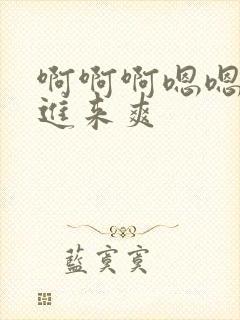 啊啊啊嗯嗯
進来爽
藍寞寞